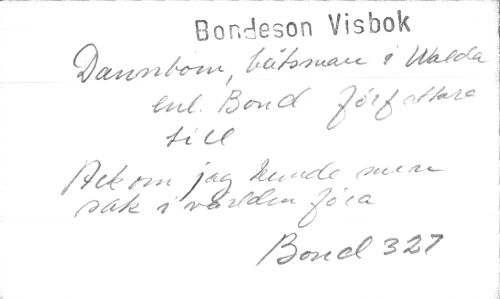 Bondeson Visbok
Dannbom, båtsman i Walda
enl. Bond författare
till
Ack om jag kunde min
sak i världen föra
Bond 327